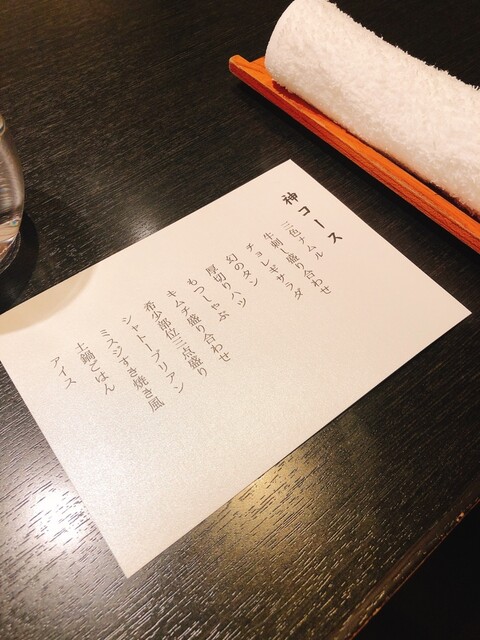 神コース
三色ナムル
牛刺し盛り合わせ
チョレギサラダ
幻のタン
厚切りハツ
もつしゃぶ
キムチ盛り合わせ
希少部位三点盛り
シャトーブリアン
ミスジすき焼き風
土鍋ごはん
アイス